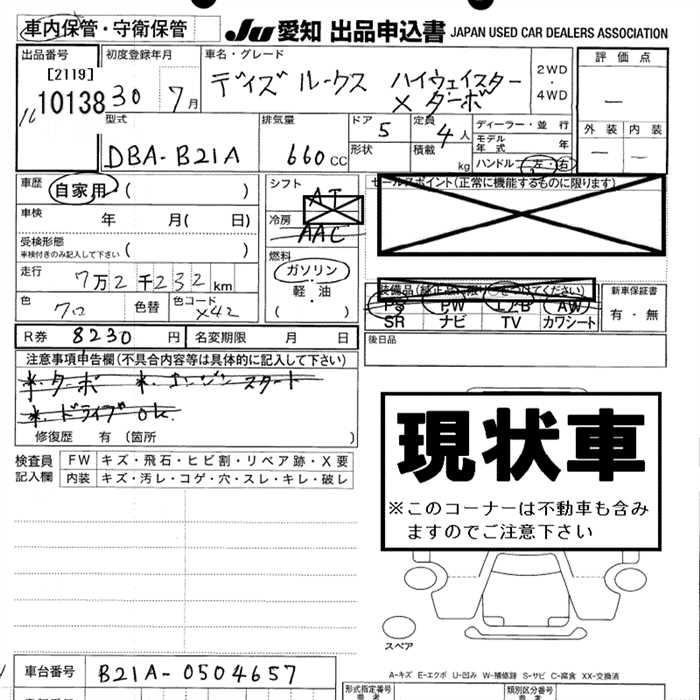 車内保管・守衛保管
JU 愛知 出品申込書 JAPAN USED CAR DEALERS ASSOCIATION
出品番号
[2119]
10138
初度登録年月
30 7月
車名・グレード
デイズ ルークス ハイウェイスター
X ターボ
2WD
・
4WD
評価点
—
外装 内装
— —
型式
DBA-B21A
排気量
660cc
ドア 5
形状
定員 4人
積載 kg
ディーラー・並行
モデル年式 年
ハンドル 左・右
車歴 自家用 ( )
車検 年 月( 日)
受検形態
車検付きのみ記入して下さい ( )
走行 7万2千232km
色 クロ 色替 色コード X42
シフト AT
冷房 AAC
燃料
ガソリン
・
軽・油
( )
セールスポイント(正常に機能するものに限ります)
PS PW AW
SR ナビ TV カワシート
新車保証書
有・無
R券 8230円 名変期限 月 日
後日品
注意事項申告欄(不具合内容等は具体的に記入して下さい)
*ターボ *エンジンスタート
*ドライブOK
修復歴 有 (箇所 )
検査員
記入欄
FW キズ・飛石・ヒビ割・リペア跡・X要
内装 キズ・汚レ・コゲ・穴・スレ・キレ・破レ
現状車
※このコーナーは不動車も含み
ますのでご注意下さい
スペア
A-キズ E-エクボ U-凹み W-補修跡 S-サビ C-腐食 XX-交換済
車台番号 B21A-0504657
形式指定番号
類別区分番号